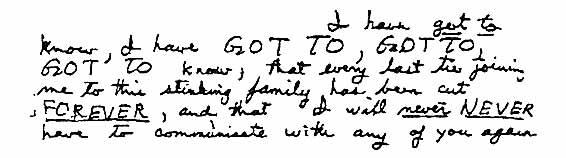 I have got to
know, I have GOT TO, GOT TO,
GOT TO know, that every last tie joining
me to this stinking family has been cut
FOREVER, and that I will never NEVER
have to communicate with any of you again